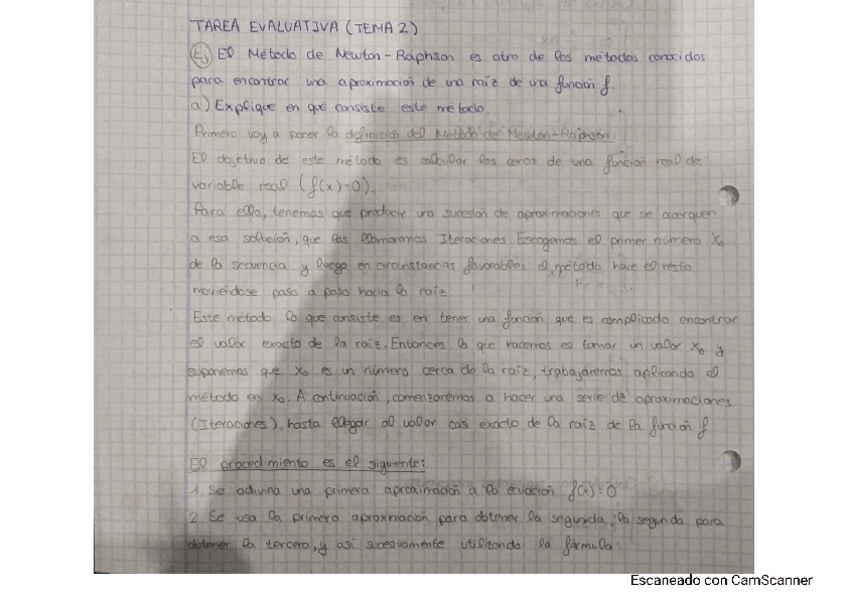 TAREA EVALUATIVA (TEMA 2)
Ej El Método de Newton-Raphson es otro de los métodos conocidos
para encontrar una aproximación de una raíz de una función f.
a) Explique en qué consiste este método.
Primero voy a poner la definición del Método de Newton-Raphson:
El objetivo de este método es calcular los ceros de una función real de
variable real (f(x)=0).
Para ello, tenemos que producir una sucesión de aproximaciones que se acerquen
a esa solución, que las llamaremos Iteraciones. Escogemos el primer número x₀
de la secuencia y luego en circunstancias favorables el método hace el resto
moviéndose paso a paso hacia la raíz.
Este método lo que consiste es en tener una función que es complicado encontrar
el valor exacto de la raíz. Entonces lo que hacemos es tomar un valor x₀ y
suponemos que x₀ es un número cerca de la raíz, trabajaremos aplicando el
método en x₀. A continuación, comenzaremos a hacer una serie de aproximaciones
(Iteraciones), hasta llegar al valor casi exacto de la raíz de la función f
El procedimiento es el siguiente:
1. Se adivina una primera aproximación a la ecuación f(x)=0
2. Se usa la primera aproximación para obtener la segunda, la segunda para
obtener la tercera, y así sucesivamente utilizando la fórmula:
Escaneado con CamScanner